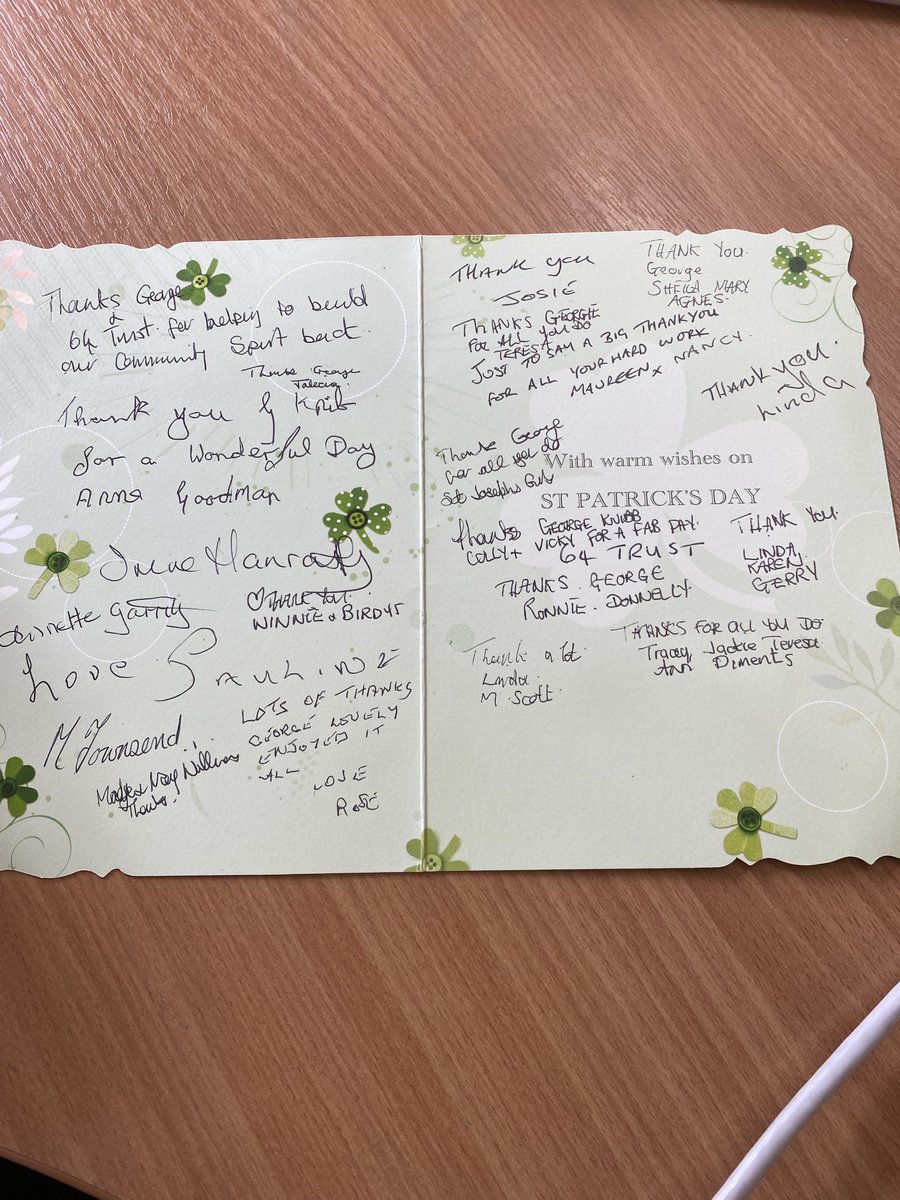 Thanks George
&
64 Trust for helping to build
our Community Spirit back.
Thanks George
Thank you G Knib
for a Wonderful Day
Anna Goodman
Irene Hanratty
Annette Garrity
THANK YOU
WINNIE & BIRDY
Love PAULINE
M Townsend
LOTS OF THANKS
GEORGE LOVELY
ENJOYED IT
ALL
LOVE
ROSE
Madge & Mary Williams
Thanks.
THANK YOU
JOSIE
THANKS GEORGIE
FOR ALL YOU DO
TERESA
JUST TO SAY A BIG THANKYOU
FOR ALL YOUR HARD WORK
MAUREEN x NANCY.
THANK YOU.
George
SHEILA MARY
AGNES
THANK YOU.
Linda
Thanks George
for all you do
St Josephs
With warm wishes on
ST PATRICK'S DAY
Thanks GEORGE KNIBB
COLLY + VICKY FOR A FAB DAY.
64 TRUST
THANKS. GEORGE
RONNIE. DONNELLY
THANK YOU.
LINDA
KAREN
GERRY
Thank a lot
Linda
M. Scott
THANKS FOR ALL YOU DO
Tracey Jackie Teresa
Ann Diments